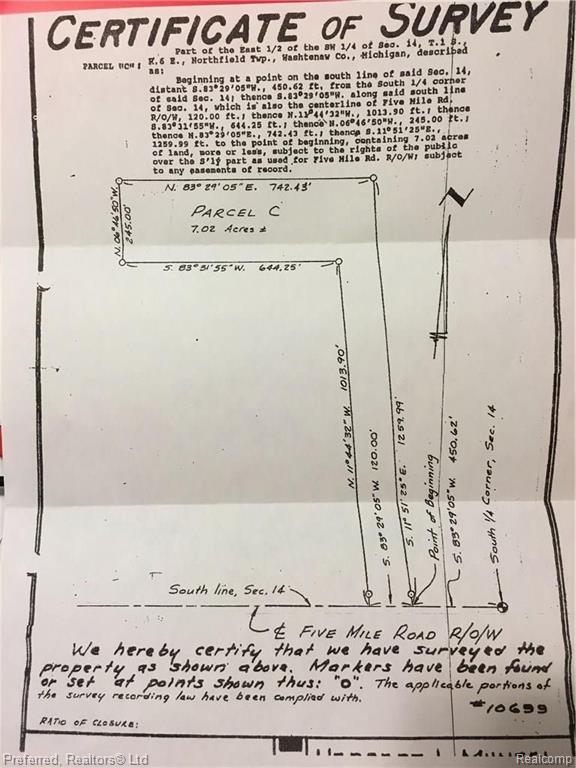 CERTIFICATE OF SURVEY
PARCEL "C": Part of the East 1/2 of the SW 1/4 of Sec. 14, T.1 S.,
R.6 E., Northfield Twp., Washtenaw Co., Michigan, described
as:
Beginning at a point on the south line of said Sec. 14,
distant S.83°29'05"W. 450.62 ft. from the South 1/4 corner
of said Sec. 14; thence S.83°29'05"W. along said south line
of Sec. 14, which is also the centerline of Five Mile Rd.
R/O/W, 120.00 ft.; thence N.11°44'32"W., 1013.90 ft.; thence
S.83°31'55"W., 644.25 ft.; thence N.06°46'50"W., 245.00 ft.;
thence N.83°29'05"E., 742.43 ft.; thence S.11°51'25"E.,
1259.99 ft. to the point of beginning, containing 7.02 acres
of land, more or less, subject to the rights of the public
over the S'ly part as used for Five Mile Rd. R/O/W; subject
to any easements of record.
N. 83° 29' 05" E. 742.43'
N. 06° 46' 50" W.
245.00'
PARCEL C
7.02 Acres ±
S. 83° 31' 55" W. 644.25'
N
N. 11° 44' 32" W. 1013.90'
S. 83° 29' 05" W. 120.00'
S. 11° 51' 25" E. 1259.99'
Point of Beginning
S. 83° 29' 05" W. 450.62'
South 1/4 Corner, Sec. 14
South line, Sec. 14
℄ FIVE MILE ROAD R/O/W
We hereby certify that we have surveyed the
property as shown above. Markers have been found
or set at points shown thus: "O". The applicable portions of
the survey recording law have been complied with.
#10699
RATIO OF CLOSURE:
Preferred, Realtors® Ltd
Realcomp